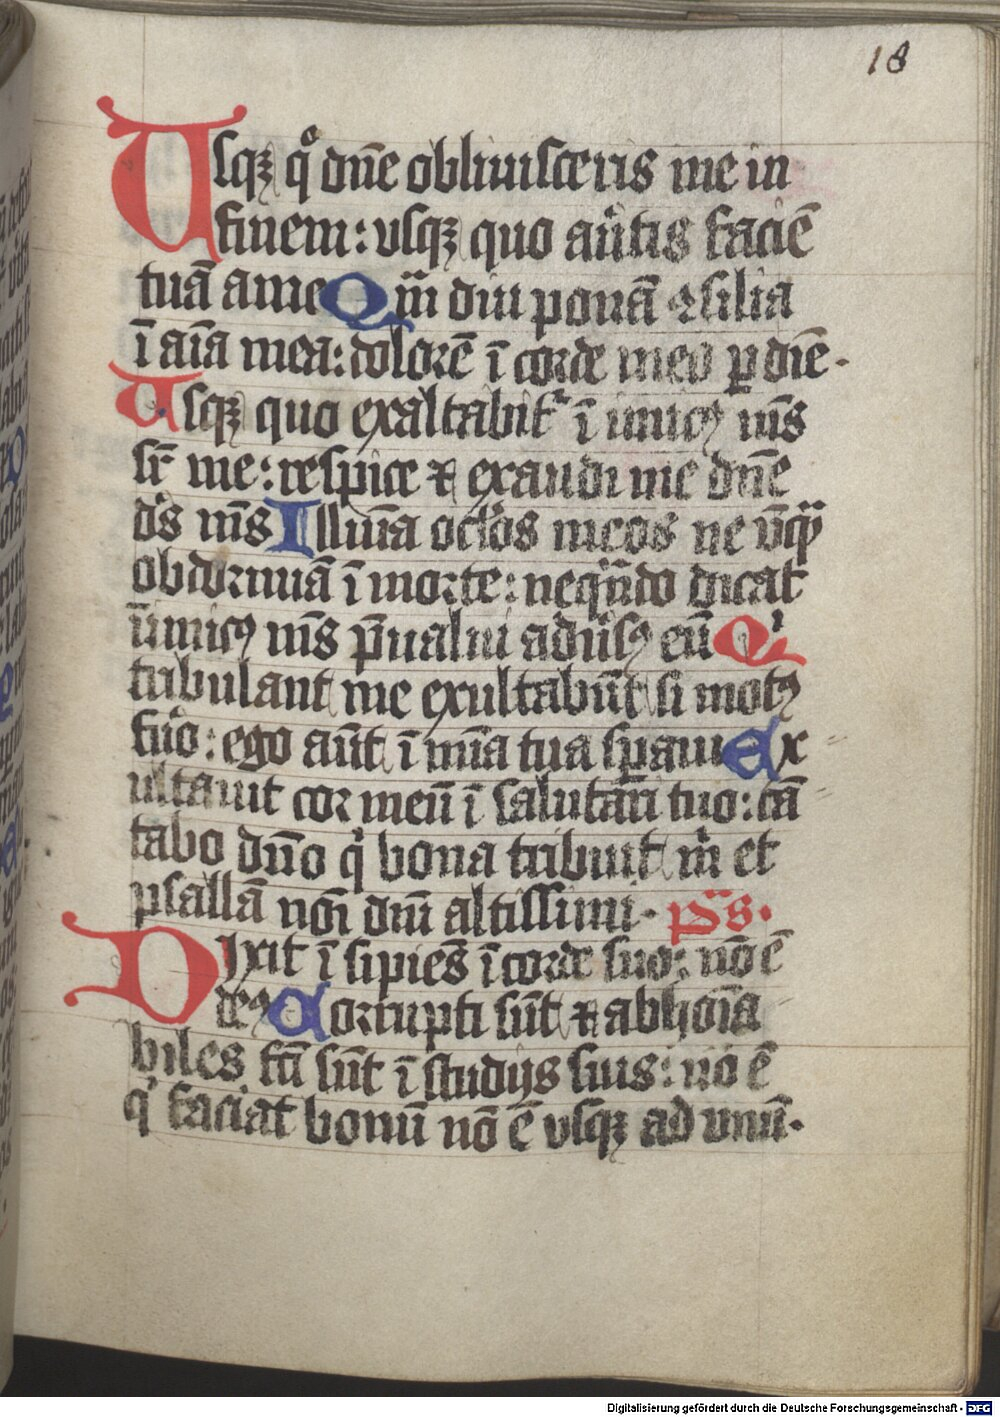 18
Usqꝫ qͦ dn̄e obliuisceris me in
finem: vsqꝫ quo au̾tis faciē
tuā a me Qm̄ diu ponā ꝯsilia
ī aīa mea: dolorē ī corde meo ꝑ diē.
Usqꝫ quo exaltabit᷑ īimicꝰ mꝰs
sr̄ me: respice ⁊ exaudi me dn̄e
ds̄ ms̄ Illuīa oclōs meos ne vn̄qᷓ
obdormiā ī morte: neqn̄do dicat
īimicꝰ ms̄ p̄ualui adu̾sꝰ eū Qͥ
tribulant me exultabūt si motꝰ
fu̾o: ego aūt ī mīa tua sꝑaui Ex
ultauit cor meū ī salutari tuo: cā
tabo dn̄o qͥ bona tribuit m̄ et
psallā noī dn̄i altissimi. ps̄s.
Dixit īsipiēs ī corde suo: nō ē
deꝰ Corrupti sūt ⁊ abhoīa
biles fc̄i sūt ī studijs suis: nō ē
qͥ faciat bonū nō ē vsqꝫ ad vnū.
Digitalisierung gefördert durch die Deutsche Forschungsgemeinschaft - DFG